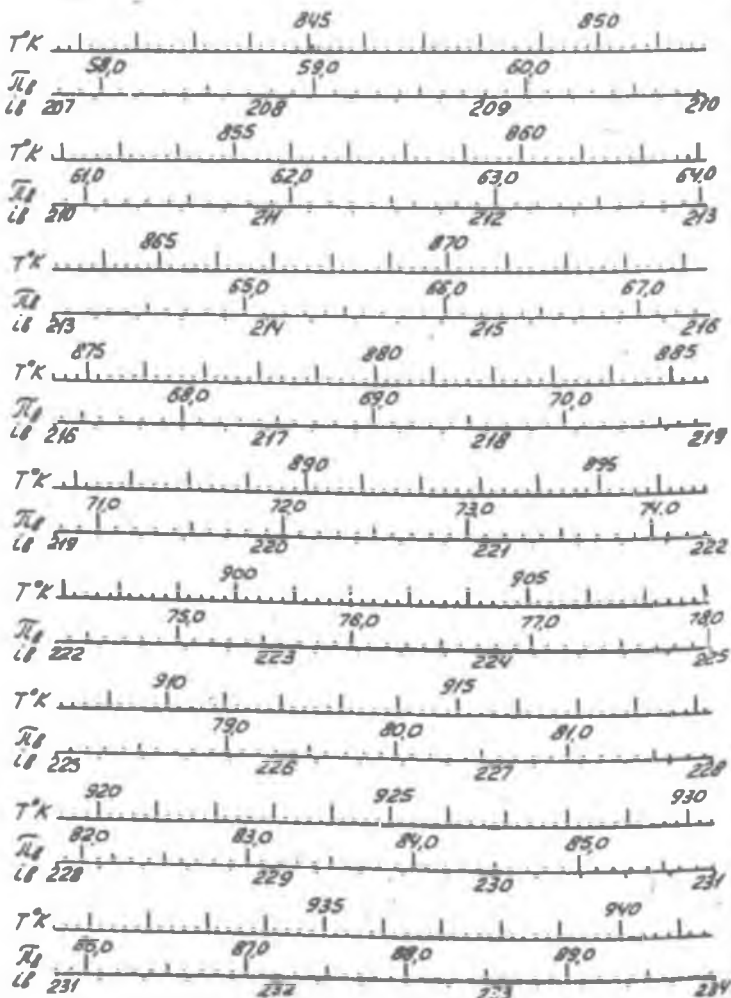 845 850
T°K
58,0 59,0 60,0
πв
iв 207 208 209 210
855 860
T°K
61,0 62,0 63,0 64,0
πв
iв 210 211 212 213
865 870
T°K
65,0 66,0 67,0
πв
iв 213 214 215 216
875 880 885
T°K
68,0 69,0 70,0
πв
iв 216 217 218 219
890 895
T°K
71,0 72,0 73,0 74,0
πв
iв 219 220 221 222
900 905
T°K
75,0 76,0 77,0 78,0
πв
iв 222 223 224 225
910 915
T°K
79,0 80,0 81,0
πв
iв 225 226 227 228
920 925 930
T°K
82,0 83,0 84,0 85,0
πв
iв 228 229 230 231
935 940
T°K
87,0 88,0 89,0
πв
iв 231 232 233 234